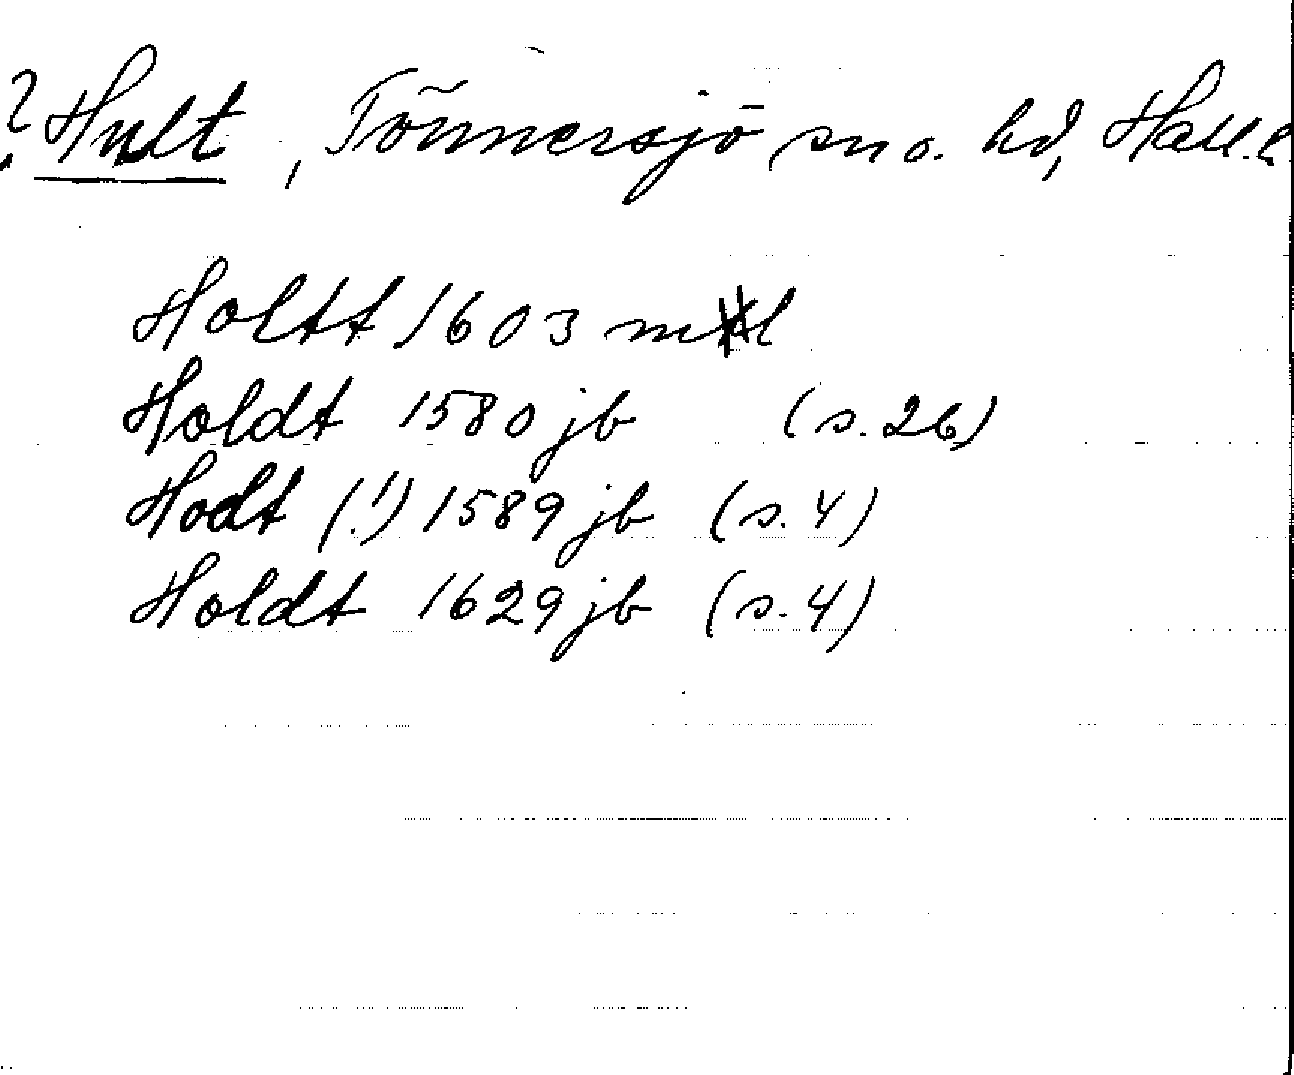 ? Hult, Tönnersjö sn o. hd, Hall. l
Holtt 1603 mtl
Holdt 1580 jb (s. 26)
Hodt (!) 1589 jb (s. 4)
Holdt 1629 jb (s. 4)